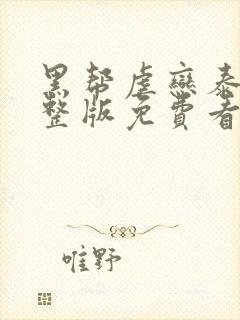 黑帮虐恋泰
整版免费看
唯野